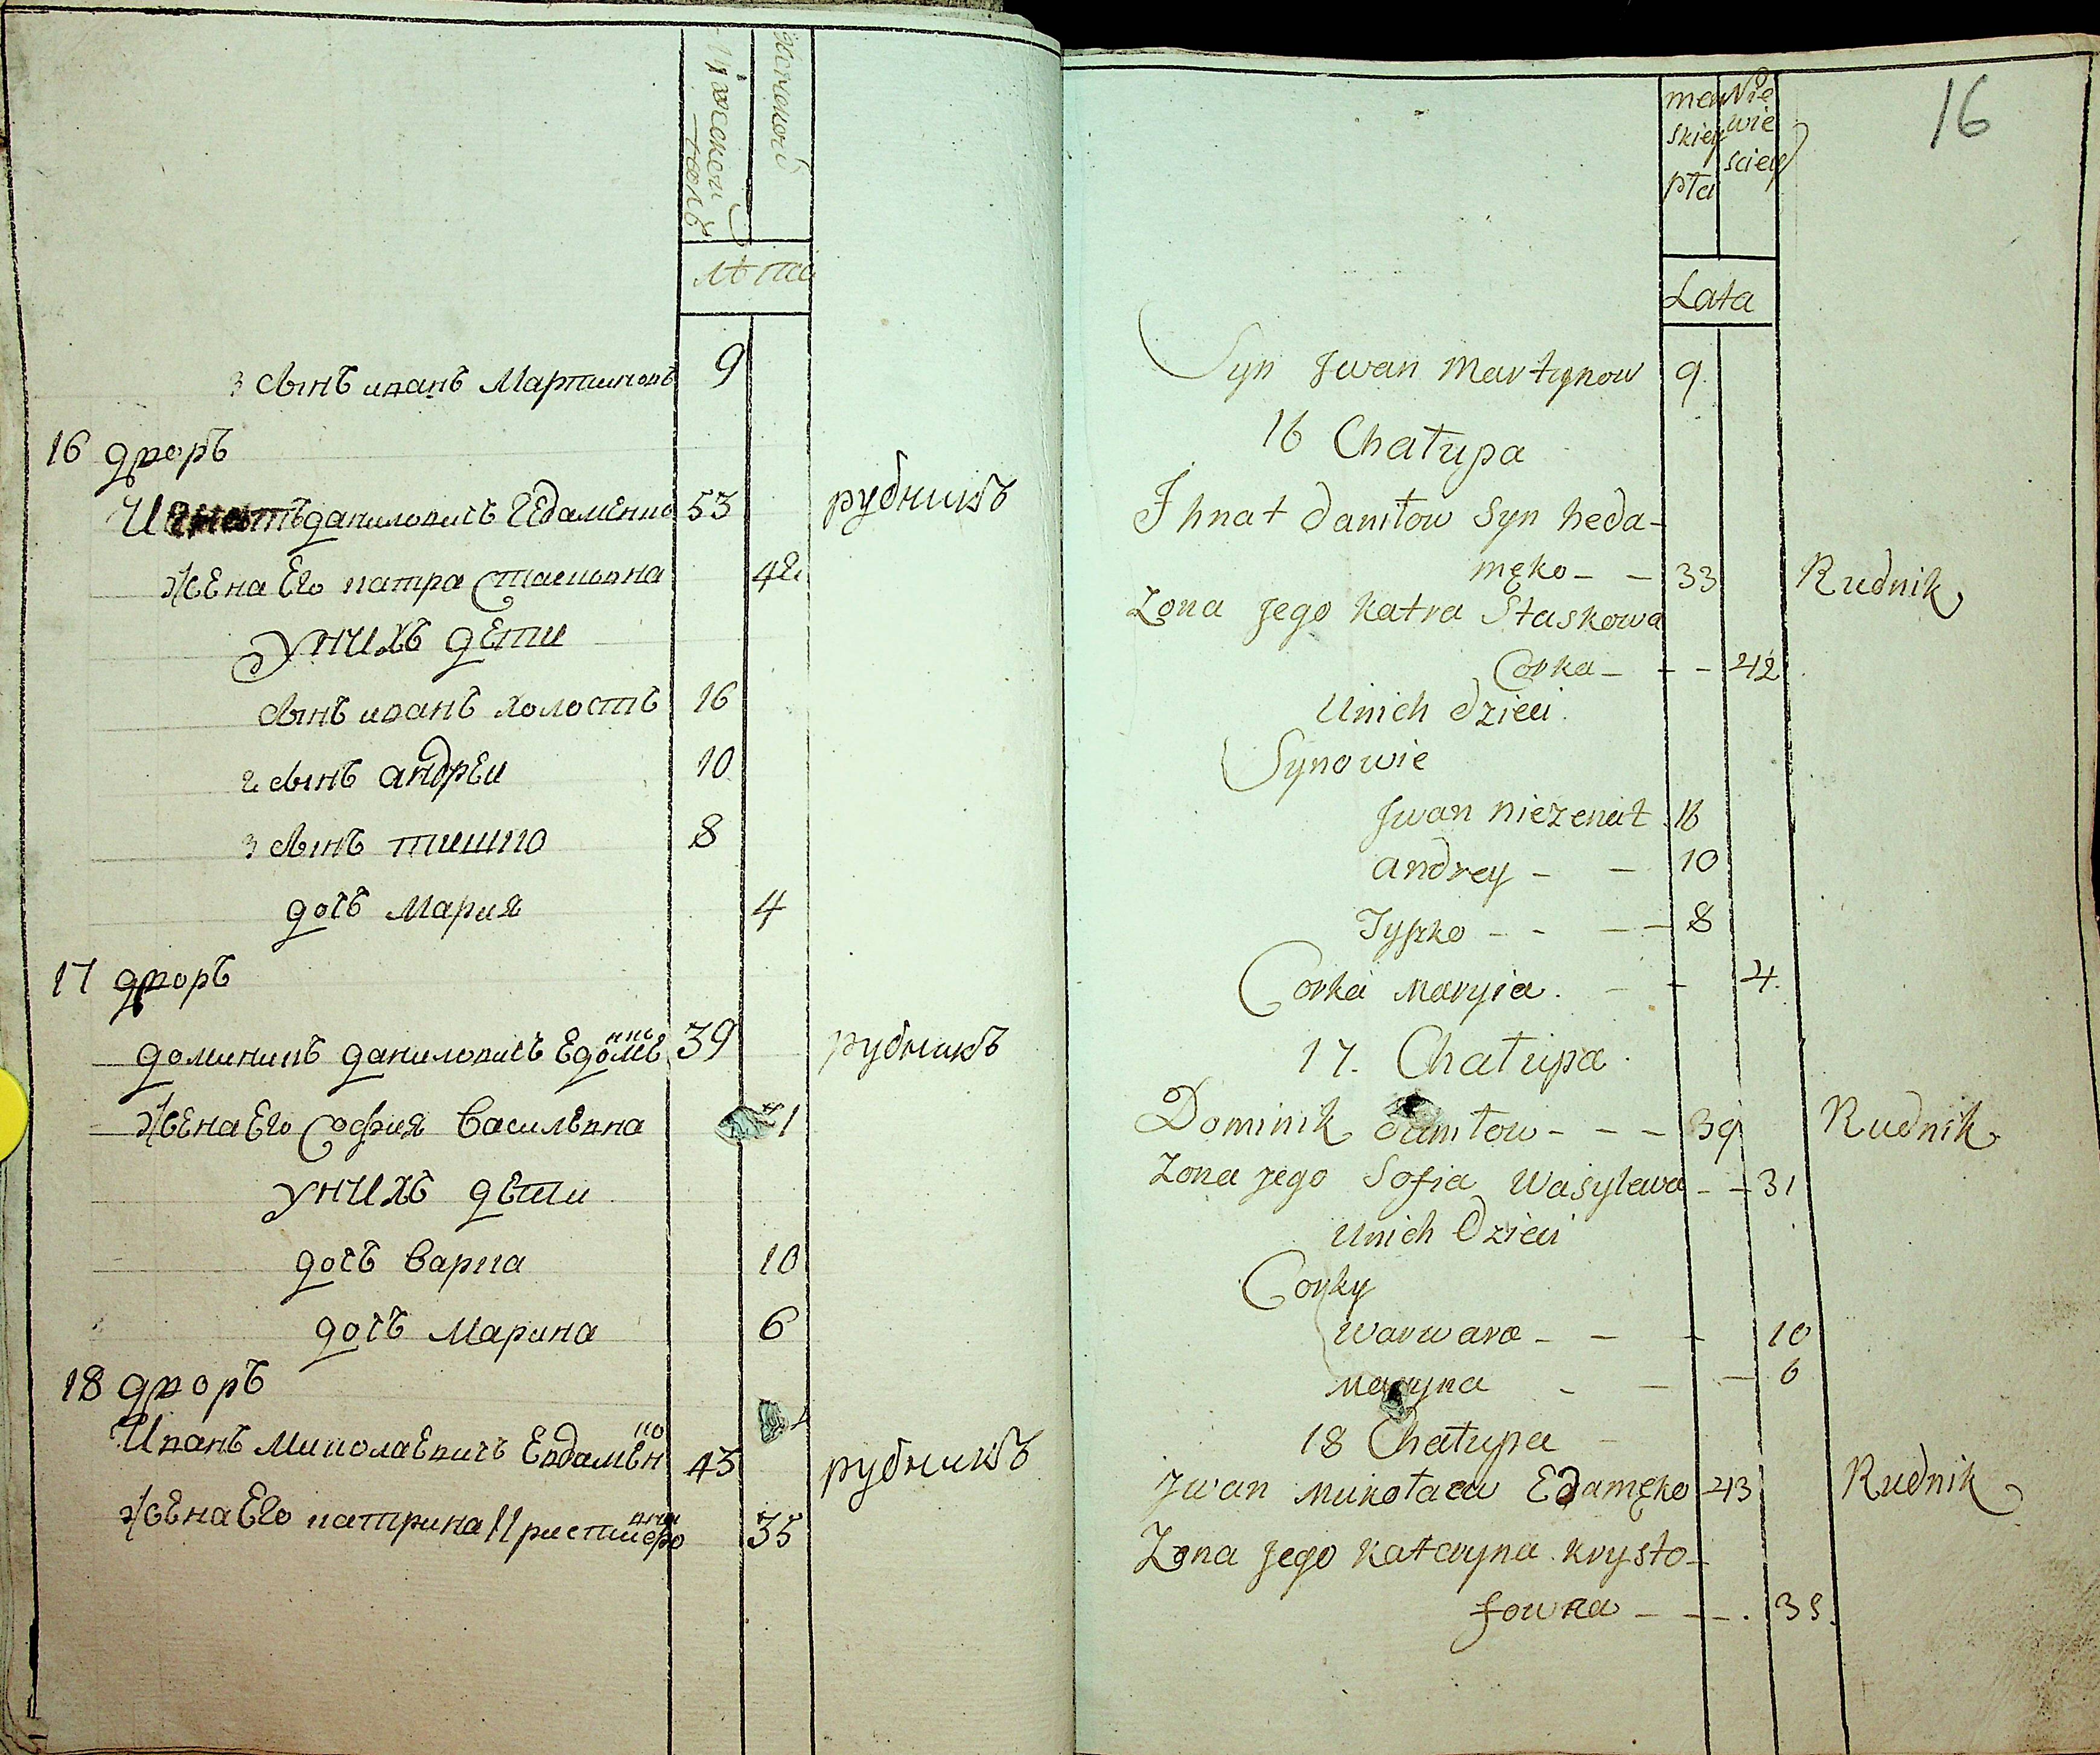 Мужеской полъ
Женской
лѣта
3 сынъ иванъ Мартиновъ 9
16 дворъ
даниловичъ Гедаменко 53 рудникъ
жена Его катра Стасковна 42
У нихъ дети
сынъ иванъ холостъ 16
2 сынъ андреи 10
3 сынъ тишко 8
дочь Мария 4
17 дворъ
доминикъ даниловичъ 39 рудникъ
жена Его София Василевна
У нихъ дети
дочь Варка 10
дочь Марина 6
18 дворъ
Иванъ Миколаевичъ Евдаменко 43 рудникъ
жена Его катрина 35
16
męskiey płci
Niewiesciey
Lata
Syn Jwan Martynow 9
16 Chałupa
Jhnat daniłow Syn heda-
męko - - 33 Rudnik
Zona Jego Katra Staskowa
Corka - - - 42
Unich dzieci
Synowie
Jwan niezenat 16
andrey - - 10
Tyszko - - - - 8
Corka Maryia - - 4
17. Chałupa
Dominik daniłow - - - 39 Rudnik
Zona Jego Sofia Wasylewa - - 31
Unich Dzieci
Corky
Warwara - - - 10
Maryna - - - 6
18 Chałupa
Jwan Mikołaew Edamęko 43 Rudnik
Zona Jego Kataryna Krysto-
fowna - - - 35